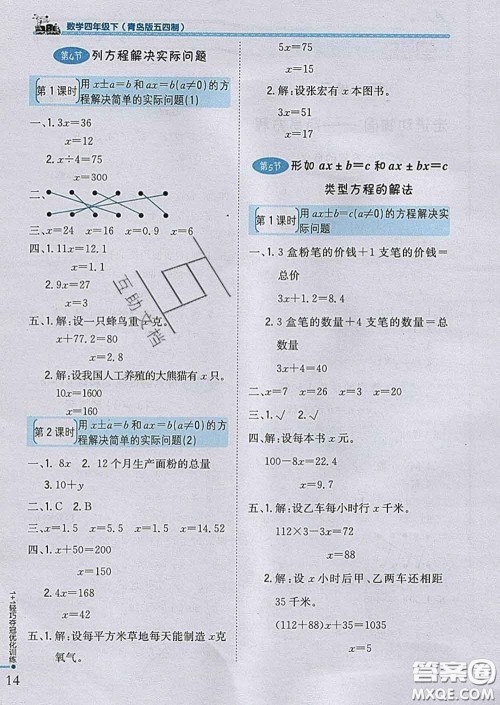 数学四年级下（青岛版五四制）
第4节 列方程解决实际问题
第1课时 用x±a=b和ax=b(a≠0)的方
程解决简单的实际问题(1)
一、1.3x=36
x=12
2.3x=900
x=300
二、
三、x=24 x=16 x=0.9 x=6
四、1.11x=12.1
x=1.1
2.3x=81
x=27
五、1.解:设一只蜂鸟重x克。
x+77.2=80
x=2.8
2.解:设我国人工养殖的大熊猫有x只。
10x=1600
x=160
第2课时 用x±a=b和ax=b(a≠0)的方
程解决简单的实际问题(2)
一、1.8x 2.12个月生产面粉的总量
3.10+y
二、1.C 2.B
三、x=1.5 x=5 x=1.5 x=14.52
四、1.x+50=200
x=150
2.4x=168
x=42
五、1.解:设每平方米草地每天能制造x克
氧气。
14
5x=75
x=15
2.解:设张宏有x本图书。
3x=51
x=17
第5节 形如ax±b=c和ax±bx=c
类型方程的解法
第1课时 用ax±b=c(a≠0)的方程解决实
际问题
一、1.3盒粉笔的价钱+1支笔的价钱=
总价
3x+1.2=8.1
2.3盒笔的数量+4支笔的数量=总
数量
3x+4=40
二、x=7 x=3 x=16 x=6
三、1.√ 2.√
四、解:设每本书x元。
100-8x=27.2
8x=72.8
x=9.1
五、1.解:设乙车每小时行x千米。
112×3-3x=72
x=88
2.解:设x小时后甲、乙两车还相距
35千米。
(112+88)x+35=635
x=3
互助文档
答案圈
MXQE.COM